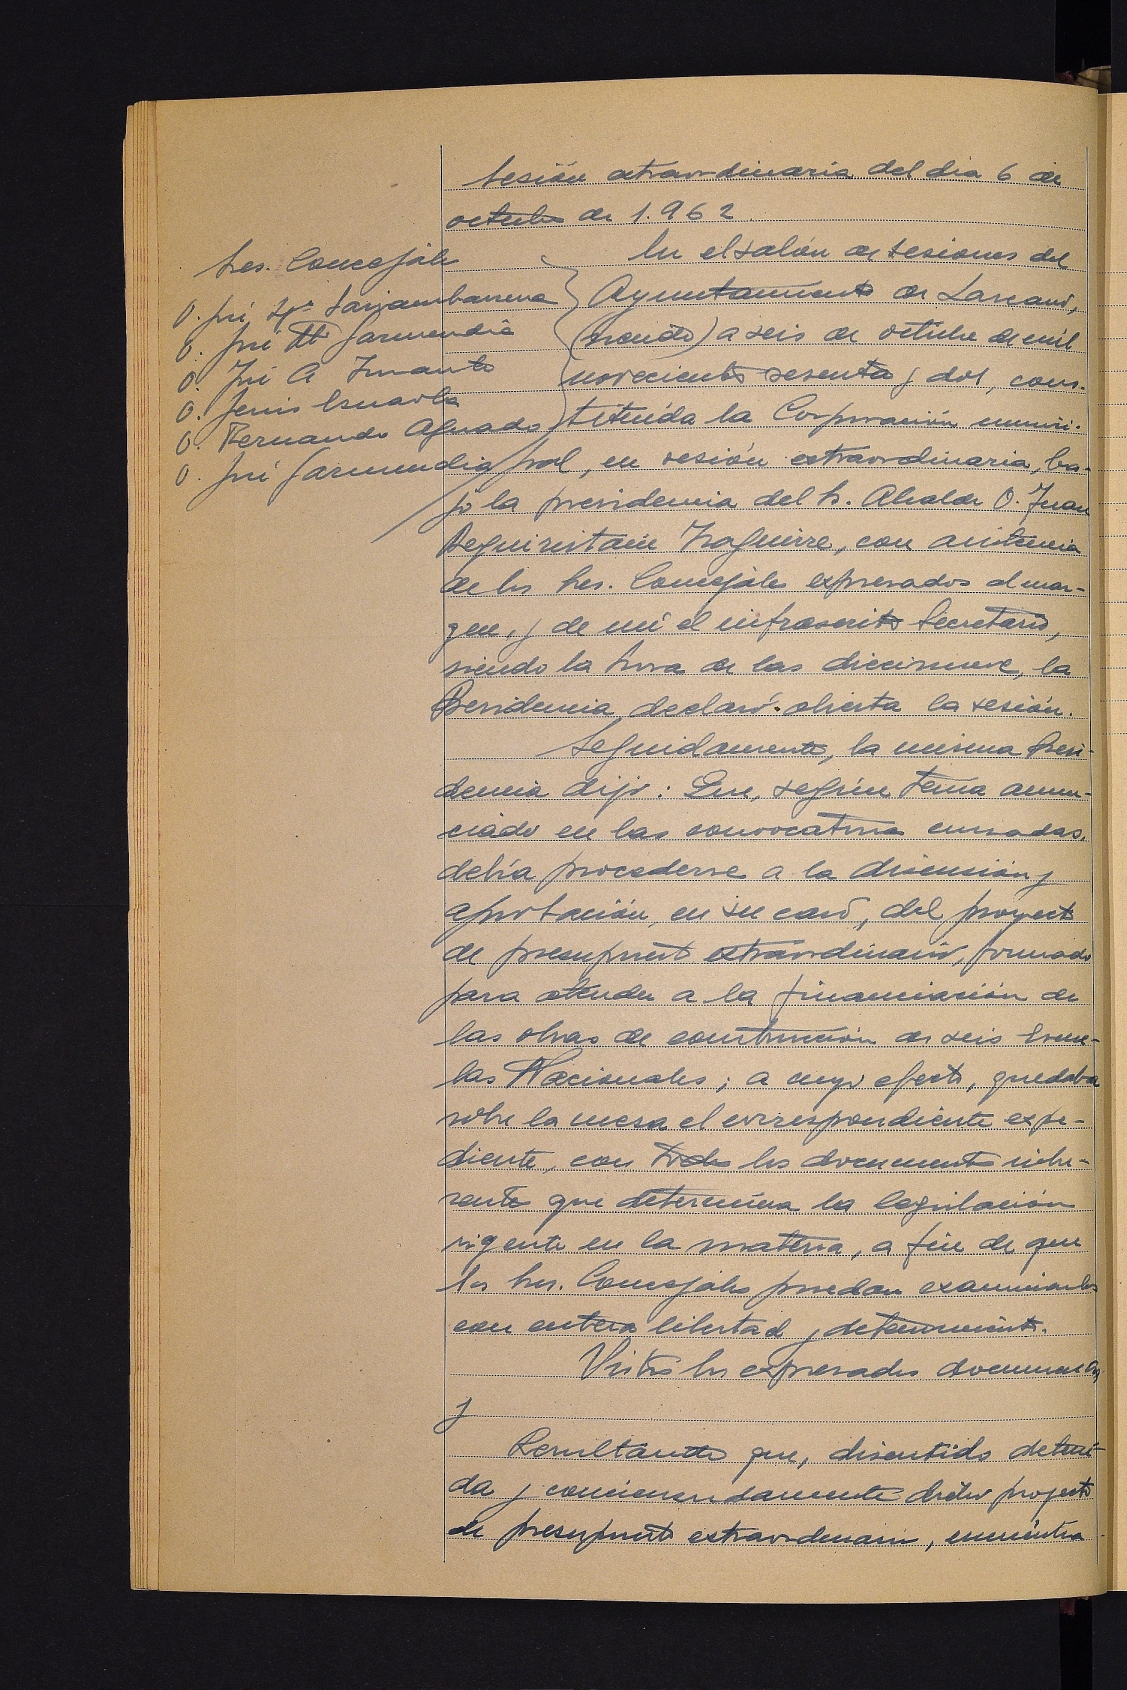 Sesión extraordinaria del dia 6 de
octubre de 1.962.
Sres. Concejales
D. José
D. José Mª Garmendia
D. José A
D. Jesús
D. Fernando Aguado
D. José Garmendia
En el salón de sesiones del
Ayuntamiento de Lazcano,
a seis de octubre de mil
novecientos sesenta y dos, cons-
tituída la Corporación munici-
pal, en sesión extraordinaria, ba-
jo la presidencia del Sr. Alcalde D. Juan
con asistencia
de los Sres. Concejales expresados al mar-
gen, y de mí el infrascrito Secretario,
siendo la hora de las diecinueve, la
Presidencia declaró abierta la sesión.
Seguidamente, la misma Presi-
dencia dijo: Que, según tema anun-
ciado en las convocatorias cursadas,
debía procederse a la discusión y
aprobación, en su caso, del proyecto
de presupuesto extraordinario, formado
para atender a la financiación de
las obras de construcción de seis Escue-
las Nacionales; a cuyo efecto, quedaba
sobre la mesa el correspondiente expe-
diente, con todos los documentos inhe-
rentes que determina la legislación
vigente en la materia, a fin de que
los Sres. Concejales puedan examinarlos
con entera libertad y detenimiento.
Vistos los expresados documentos,
y
Resultando que, discutido deteni-
da y concienzudamente dicho proyecto
de presupuesto extraordinario, encuentra